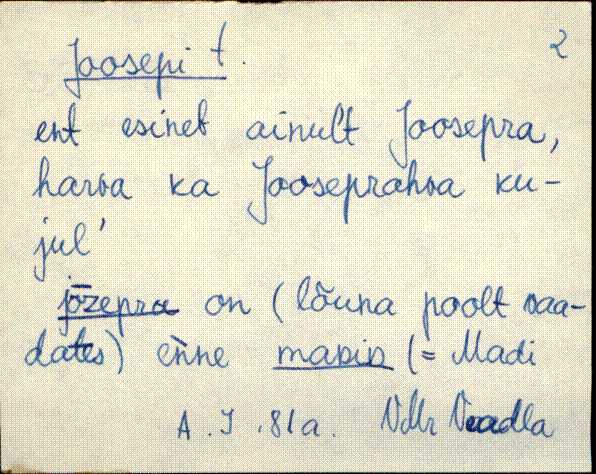 Joosepi t. 2
ent esineb ainult Joosepra,
harva ka Jooseprahva ku-
jul'
jōzepra on (lõuna poolt vaa-
dates) enne (= Madi
A. J. 81 a. Vdlla